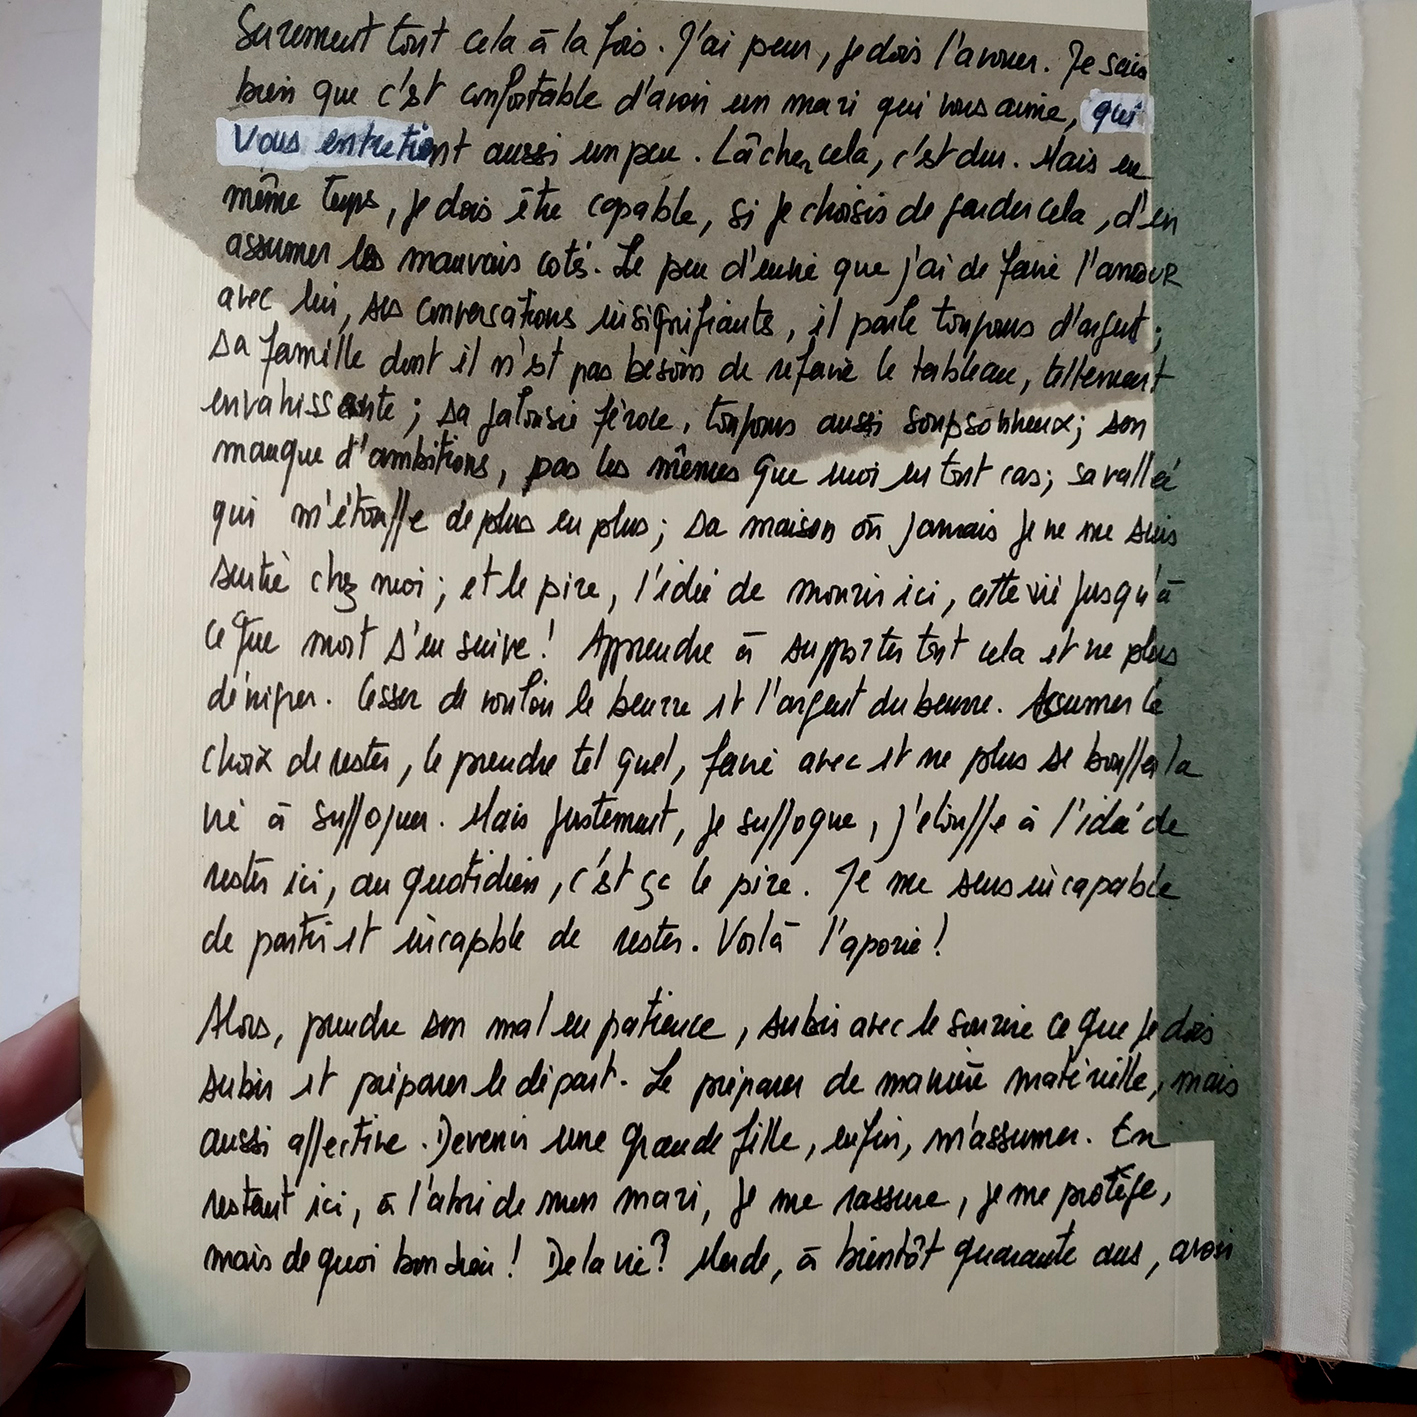 Surement tout cela à la fois. J'ai peur, je dois l'avouer. Je sais
bien que c'est confortable d'avoir un mari qui vous aime, qui
vous entretient aussi un peu. Lâcher cela, c'est dur. Mais en
même temps, je dois être capable, si je choisis de garder cela, d'en
assumer les mauvais cotés. Le peu d'envie que j'ai de faire l'amour
avec lui, ses conversations insignifiantes, il parle toujours d'argent ;
sa famille dont il n'est pas besoin de refaire le tableau, tellement
envahissante ; sa jalousie féroce, toujours aussi soupsonneux ; son
manque d'ambitions, pas les mêmes que moi en tout cas ; sa vallée
qui m'étouffe de plus en plus ; sa maison où jamais je ne me suis
sentie chez moi ; et le pire, l'idée de mourir ici, cette vie jusqu'à
ce que mort s'en suive ! Apprendre à supporter tout cela et ne plus
dénigrer. Cesser de vouloir le beurre et l'argent du beurre. Assumer le
choix de rester, le prendre tel quel, faire avec et ne plus se bouffer la
vie à suffoquer. Mais justement, je suffoque, j'étouffe à l'idée de
rester ici, au quotidien, c'est ça le pire. Je me sens incapable
de partir et incapable de rester. Voilà l'aporie !
Alors, prendre son mal en patience, subir avec le sourire ce que je dois
subir et préparer le départ. Le préparer de manière matérielle, mais
aussi affective. Devenir une grande fille, enfin, m'assumer. En
restant ici, à l'abri de mon mari, je me rassure, je me protège,
mais de quoi bon dieu ! De la vie ? Merde, à bientôt quarante ans, avoir